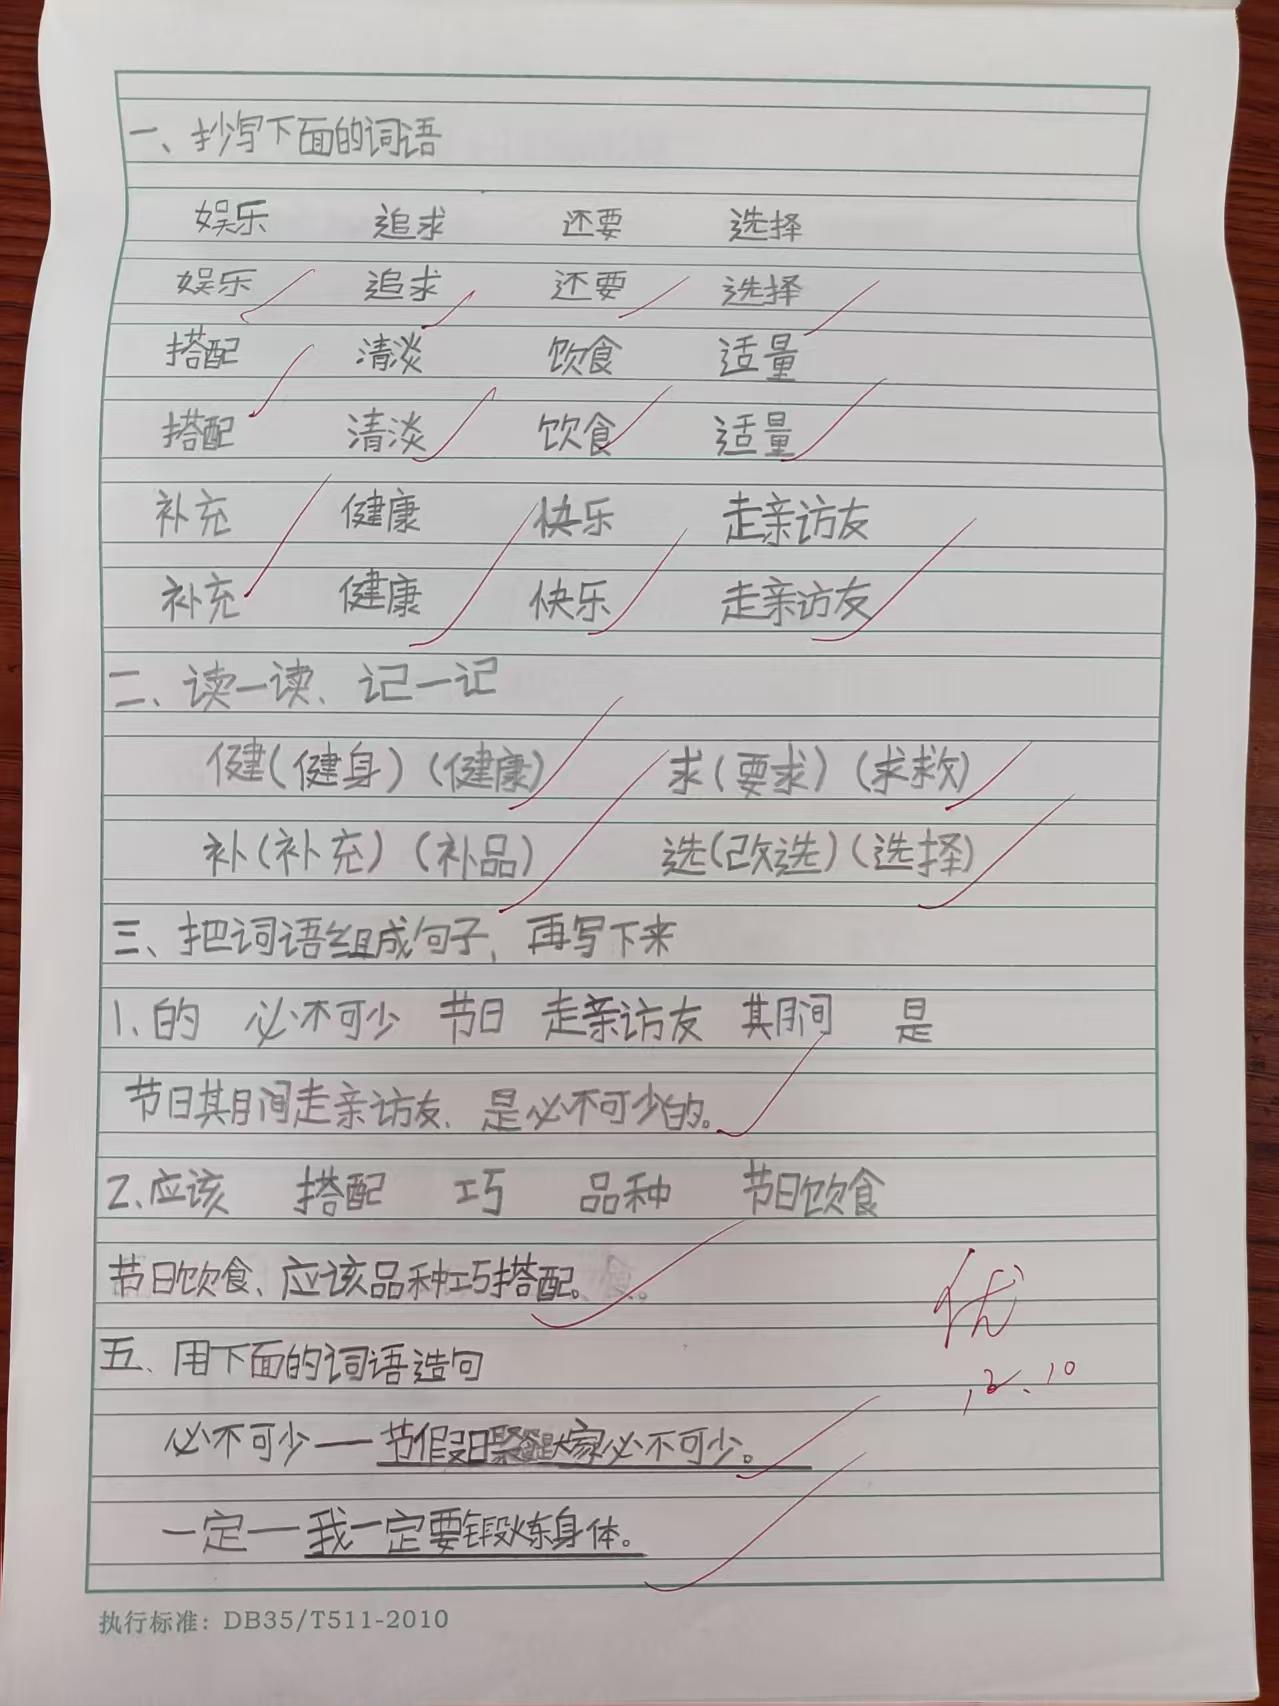 一、抄写下面的词语
娱乐 追求 还要 选择
娱乐 追求 还要 选择
搭配 清淡 饮食 适量
搭配 清淡 饮食 适量
补充 健康 快乐 走亲访友
补充 健康 快乐 走亲访友
二、读一读、记一记
健(健身)(健康) 求(要求)(求救)
补(补充)(补品) 选(改选)(选择)
三、把词语组成句子,再写下来
1、的 必不可少 节日 走亲访友 其期间 是
节日期间走亲访友、是必不可少的。
2、应该 搭配 巧 品种 节日饮食
节日饮食、应该品种巧搭配。
优
12.10
五、用下面的词语造句
必不可少——节假日聚餐是大家必不可少。
一定——我一定要锻炼身体。
执行标准：DB35/T511-2010